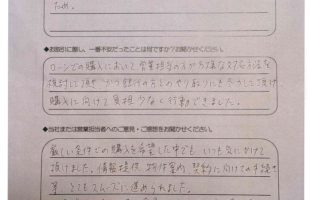 ため。
●お取引に際し、一番不安だったことは何ですか?お聞かせください。
ローンでの購入において営業担当の方から様々な対応方法を
検討して頂き かつ銀行の方とのやり取りにも尽力して頂け
購入に向けて負担少なく行動できました。
●当社または営業担当者へのご意見・ご感想をお聞かせください。
厳しい条件での購入を希望した中でも いつも気にかけて
頂けました。情報提供、物件案内、契約に向けての手続き
等 とてもスムーズに進められました。